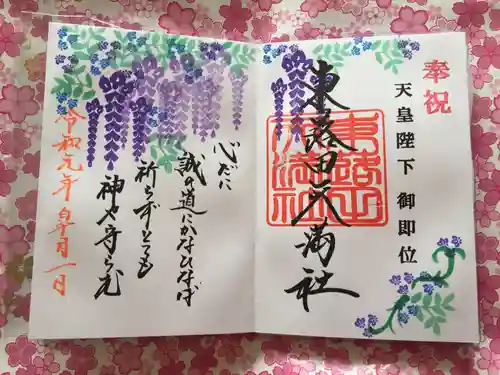 奉祝
天皇陛下 御即位
東蕗田天満社
心だに
誠の道にかなひなば
祈らずとても
神や守らむ
令和元年皐月一日